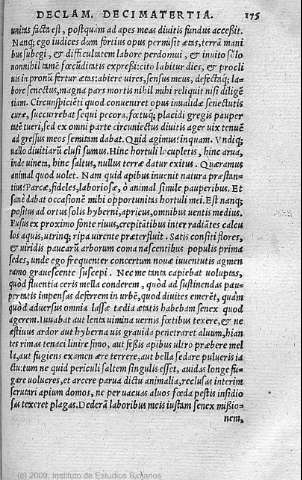 DECLAM. DECIMATERTIA. 175
unitas facta est, postquam ad apes meas diuitis fundus accessit.
Nanq; ego iudices dum fortius opus permisit ætas, terrã mani
bus subegi, & difficultatem labore perdomui, & inuito solo
nonnihil tamē fœcunditatis expressi: cito labitur dies, & procli
uis in pronũ fertur ætas: abiere uires, sensus meus, defectaq; la-
bore senectus, magna pars mortis nihil mihi reliquit nisi diligē
tiam. Circũspicienti quod conueniret opus inualidæ senectutis
curæ, succurrebat sequi pecora, fœtuq; placidi gregis pauper
tatē tueri, sed ex omni parte circuniectus diuitis ager uix tenuē
ad gressus meos semitam dabat. Quid agimus inquam. Vndiq;
uallo diuitiarũ clusi sumus. Hinc hortuli locupletis, hinc arua,
inde uineæ, hinc saltus, nullus terræ datur exitus. Quæramus
animal quod uolet. Nam quid apibus inuenit natura præstan-
tius? Parcæ, fideles, laboriosæ, o animal simile pauperibus. Et
sanè dabat occasionē mihi opportunitas hortuli mei. Est nanq;
positus ad ortus solis hyberni, apricus, omnibus uentis medius.
Fusus ex proximo fonte riuus, crepitantibus inter radiātes calcu
los aquis, utrinq; ripa uirente præterfluit. Satis consiti flores,
& uiridis paucarũ arborum coma nascentibus populis prima
sedes, unde ego frequenter concertum nouæ iuuentutis agmen
ramo grauescente suscepi. Nec me tanta capiebat uoluptas,
quòd fluentia ceris mella conderem, quàd ad sustinendas pau-
pertatis impensas deferrem in urbē, quod diuites emerēt, quàm
quòd aduersus omnia lassæ tædia ætatis habebam senex quod
agerem. Iuuabat aut lenta uimina uernis fœtibus texere, & ne
æstiuus ardor aut hyberna uis grauida penetraret aluum, hian
tes rimas tenaci linire fimo, aut fessis apibus ultro præbere mel
la, aut fugiens examen ære terrere, aut bella sedare pulueris ia
ctu: tum ne quid periculi saltem singulis esset, auidas longe fu-
gare uolucres, et arcere parua dictu animalia, reclusas interim
scrutari apium domos, ne per uacuas aluos fœda pestis insidio
sas texeret plagas. Dederã laboribus meis iustam senex missio-
nem,
(c) 2009, Instituto de Estudios Riojanos